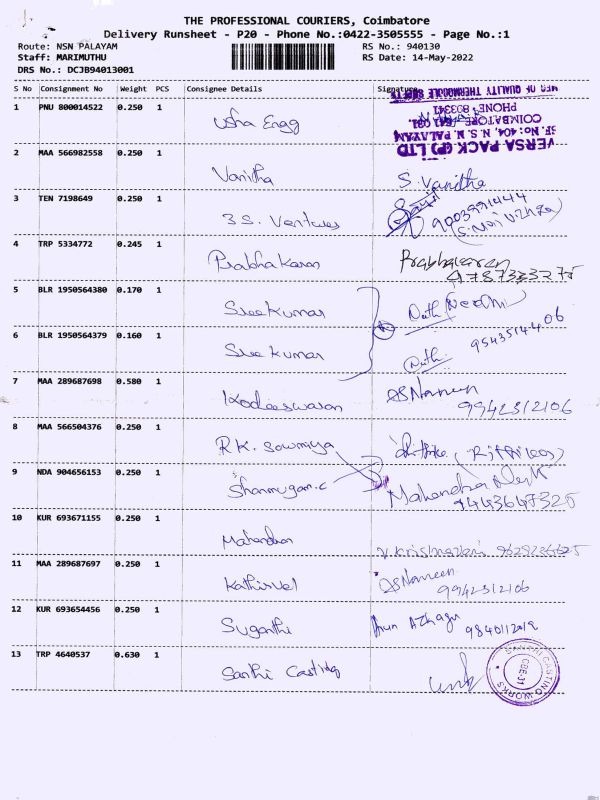 THE PROFESSIONAL COURIERS, Coimbatore
Delivery Runsheet - P20 - Phone No.:0422-3505555 - Page No.:1
Route: NSN PALAYAM RS No.: 940130
Staff: MARIMUTHU RS Date: 14-May-2022
DRS No.: DCJB94013001
S No Consignment No Weight PCS Consignee Details Signature
MFG OF QUALITY THERMOCOLE
1 PNU 800014522 0.250 1 Usha Engg
PHONE:
COIMBATORE - 641 031.
SF. No: 404, N. S. N. PALAYAM
VERSA PACK (P) LTD
2 MAA 566982558 0.250 1 Vanitha S. Vanitha
3 TEN 7198649 0.250 1 3S. Ventures 9003991444
4 TRP 5334772 0.245 1 Prabhakaran Prabhakaran
4787333275
5 BLR 1950564380 0.170 1 Sreekumar
6 BLR 1950564379 0.160 1 Sree kumar 9543514406
7 MAA 289687698 0.580 1 Kodeeswaran
9942312106
8 MAA 566504376 0.250 1 R.K. Sowmiya
9 NDA 904656153 0.250 1 Shanmugam.c Mahendra
9443647325
10 KUR 693671155 0.250 1 Mahendran V. Krishnaveni
11 MAA 289687697 0.250 1 Kathirvel
9942312106
12 KUR 693654456 0.250 1 Suganthi Arun Azhagu 9840112019
13 TRP 4640537 0.630 1 Santhi Casting
CASTING WORKS
CBE-31